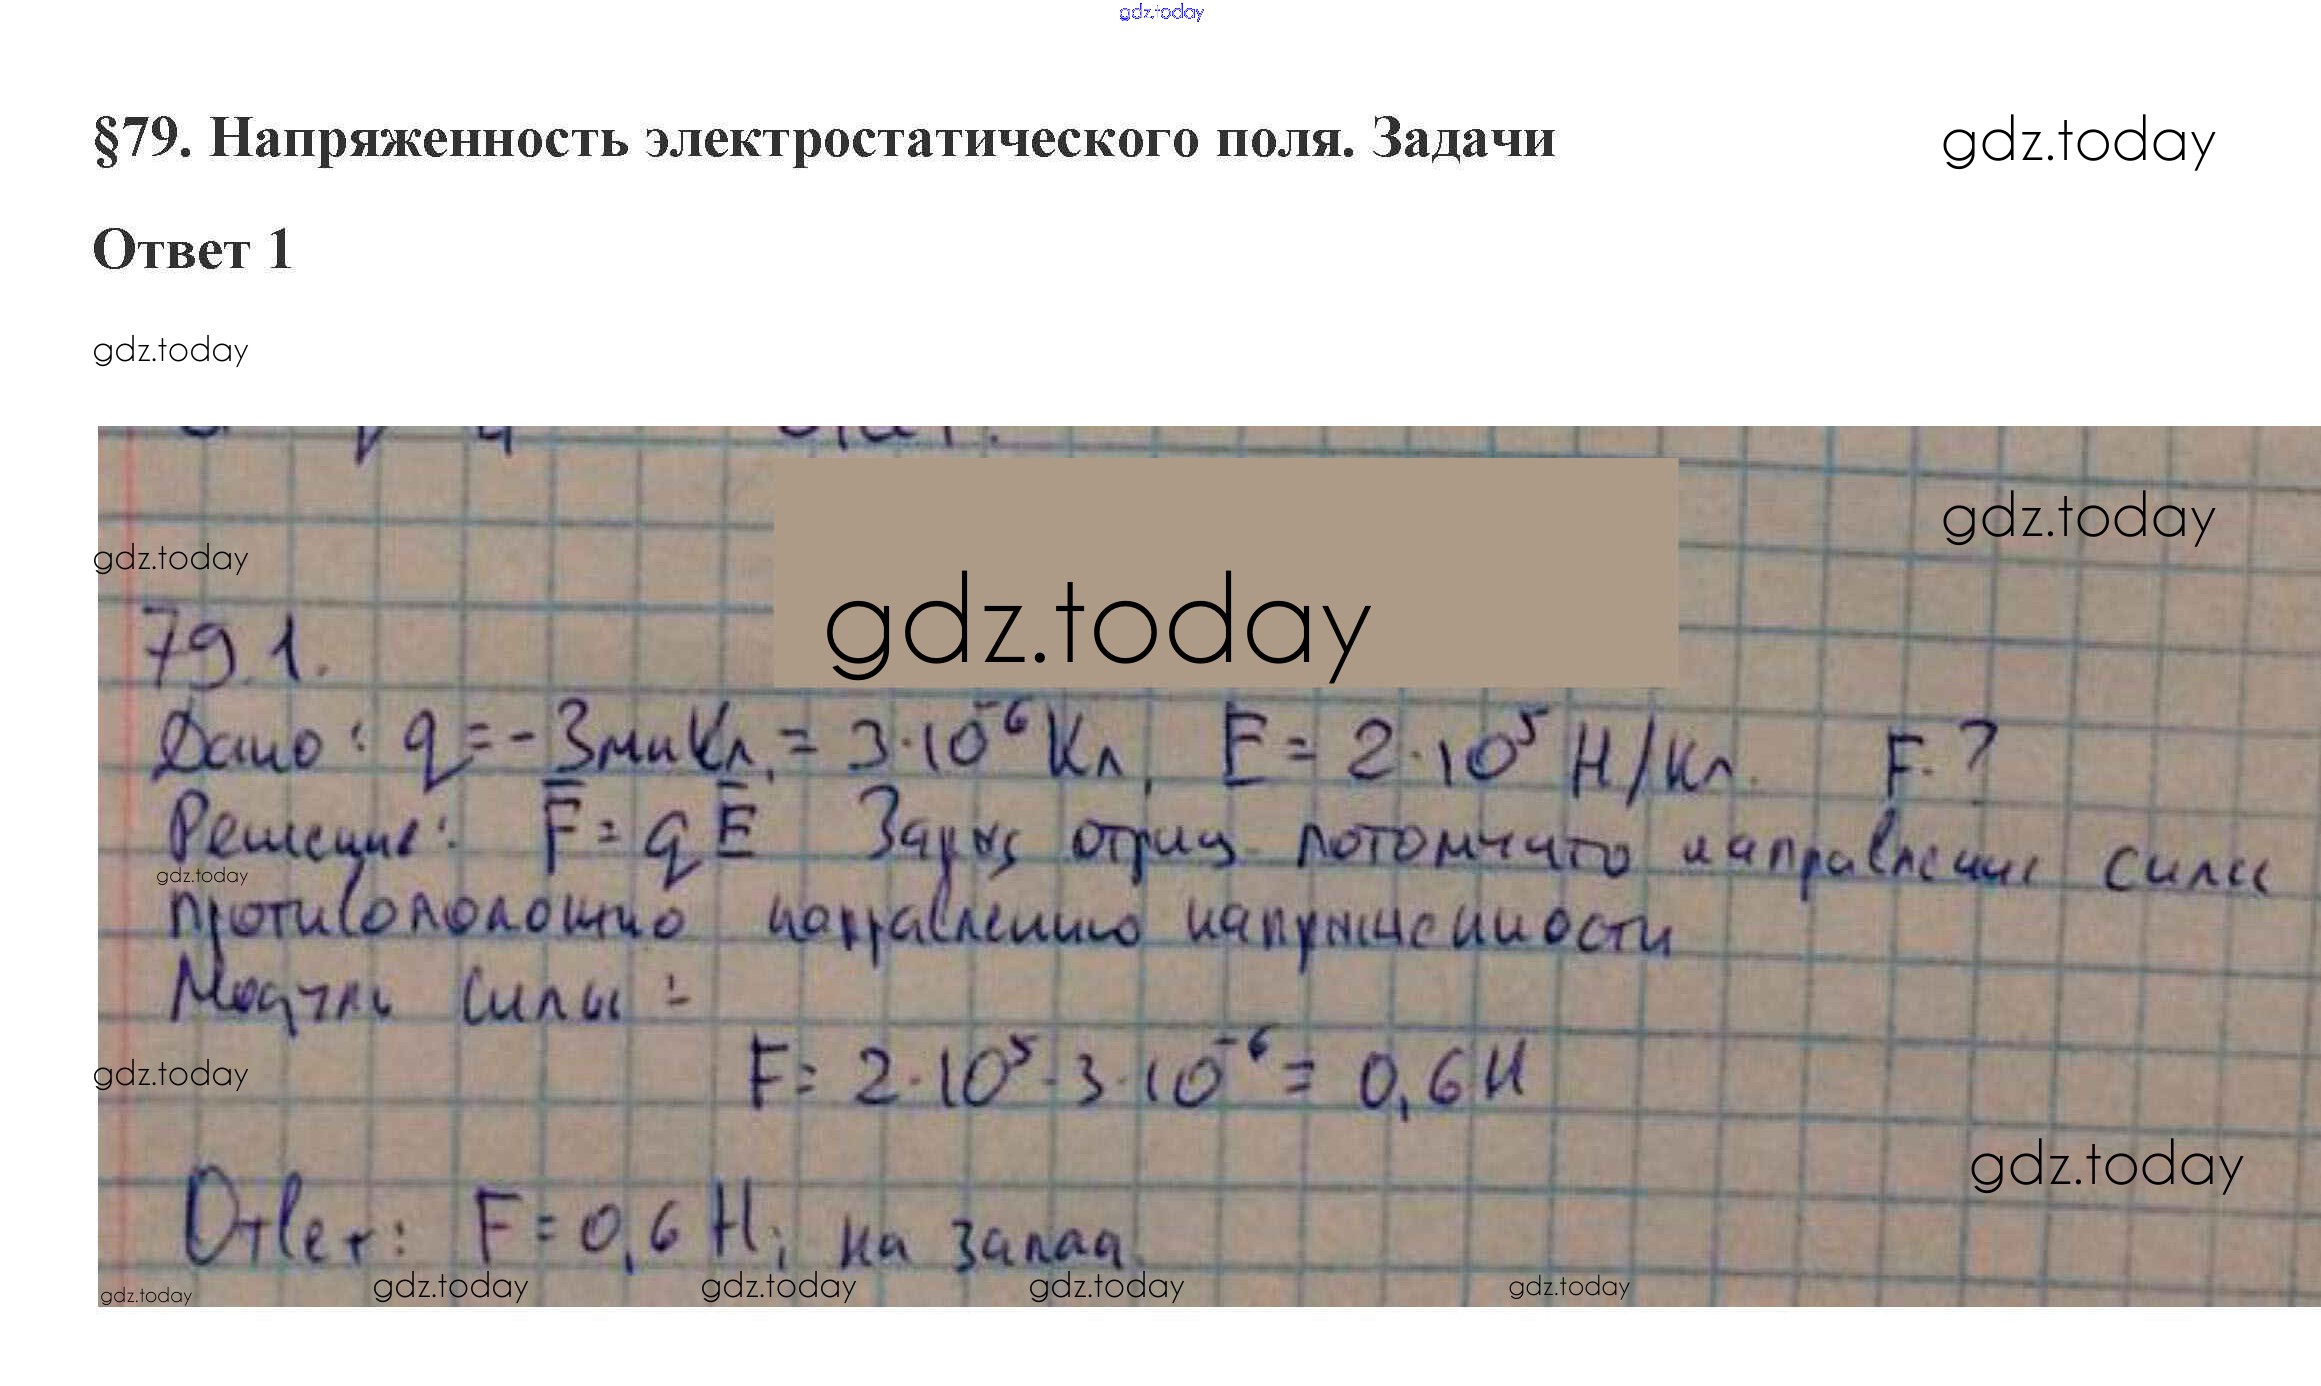 gdz.today
§79. Напряженность электростатического поля. Задачи gdz.today
Ответ 1
gdz.today
gdz.today
gdz.today
gdz.today
79.1.
Дано: q = -3мкКл. = 3·10⁻⁶ Кл, E = 2·10⁵ Н/Кл. F-?
Решение: F̅ = qE̅ Заряд отриц потомучто направление силы
gdz.today
противоположно направлению напряженности
Модуль силы =
F = 2·10⁵·3·10⁻⁶ = 0,6 Н
gdz.today
gdz.today
Ответ: F = 0,6 Н; на запад
gdz.today gdz.today gdz.today gdz.today gdz.today